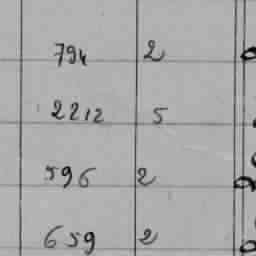 794 2
2212 5
596 2
659 2